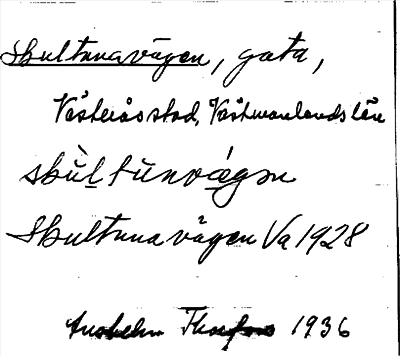 Skultunavägen, gata,
Västerås stad, Västmanlands län
skùltùnvǻgən
Skultunavägen Va 1928
1936